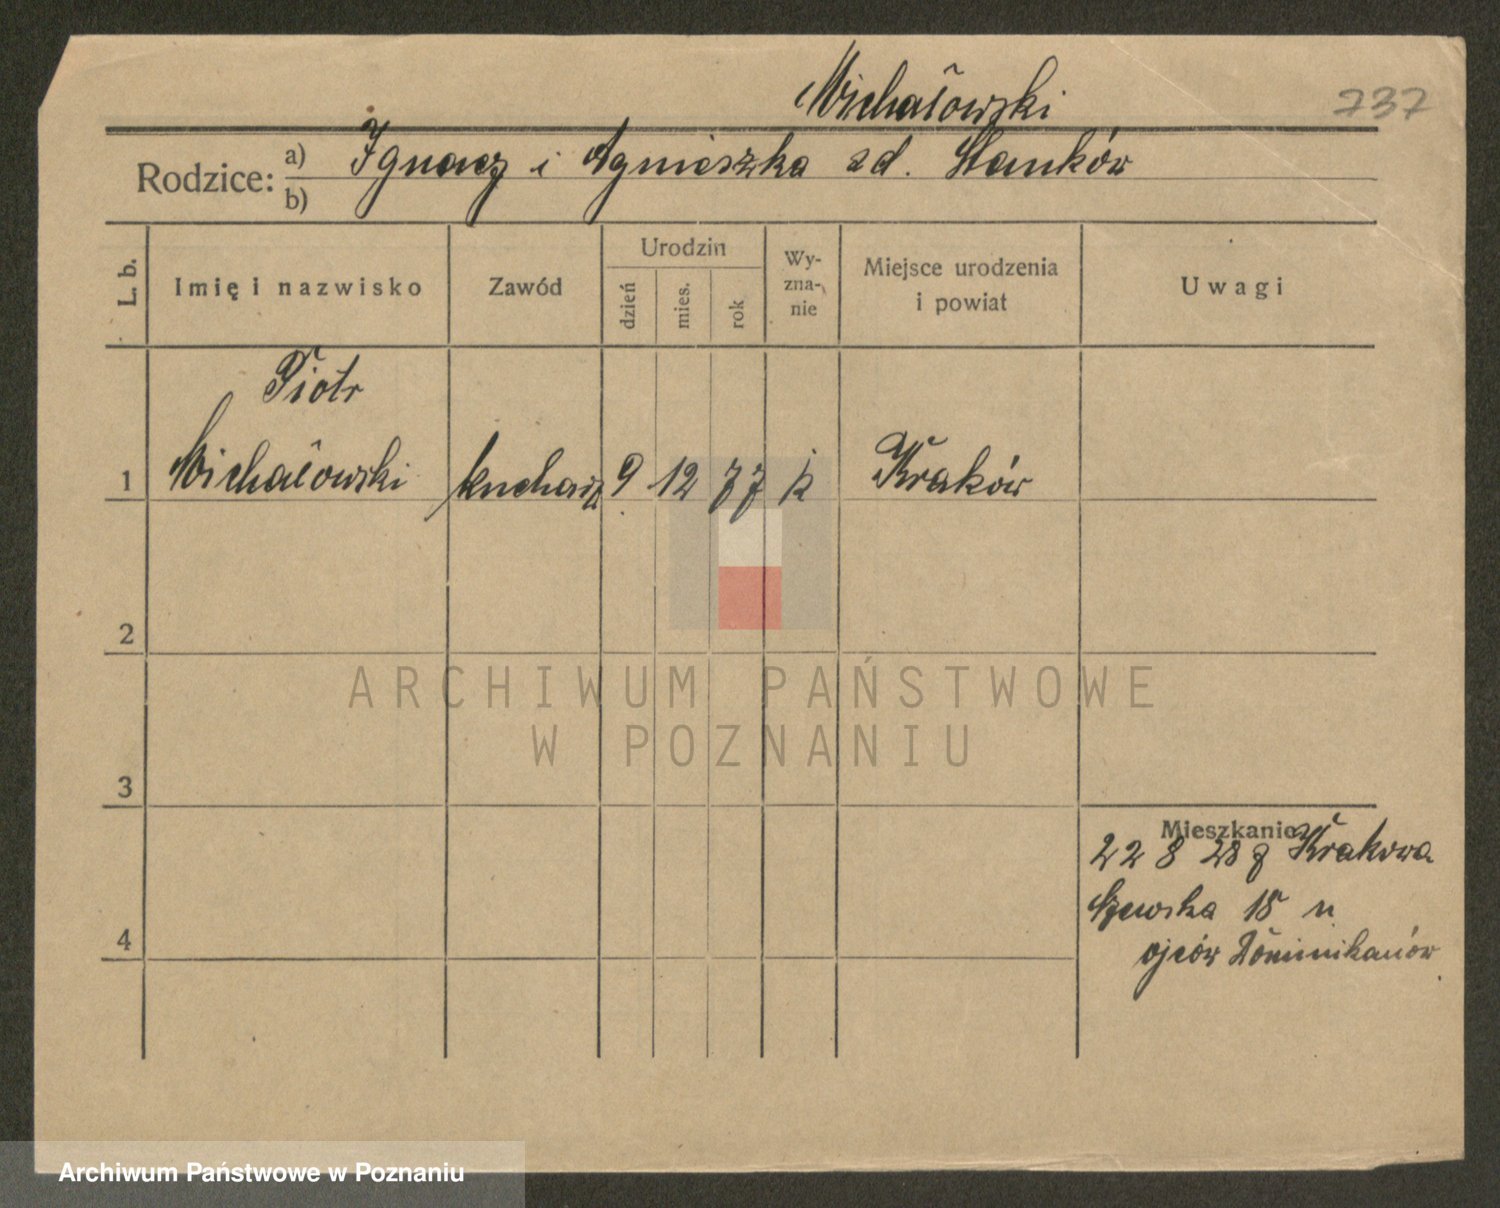 Michałowski
737
Rodzice: a) Ignacy i Agnieszka zd. Stanków
b)
L. b.
Imię i nazwisko
Zawód
Urodzin
dzień
mies.
rok
Wy-
zna-
nie
Miejsce urodzenia
i powiat
Uwagi
Piotr
1 Michałowski kucharz 9 12 77 k Kraków
2
3
4
ARCHIWUM PAŃSTWOWE
W POZNANIU
Mieszkanie
22 8 28 z Krakowa
Szewska 18 u
ojców Dominikanów
Archiwum Państwowe w Poznaniu